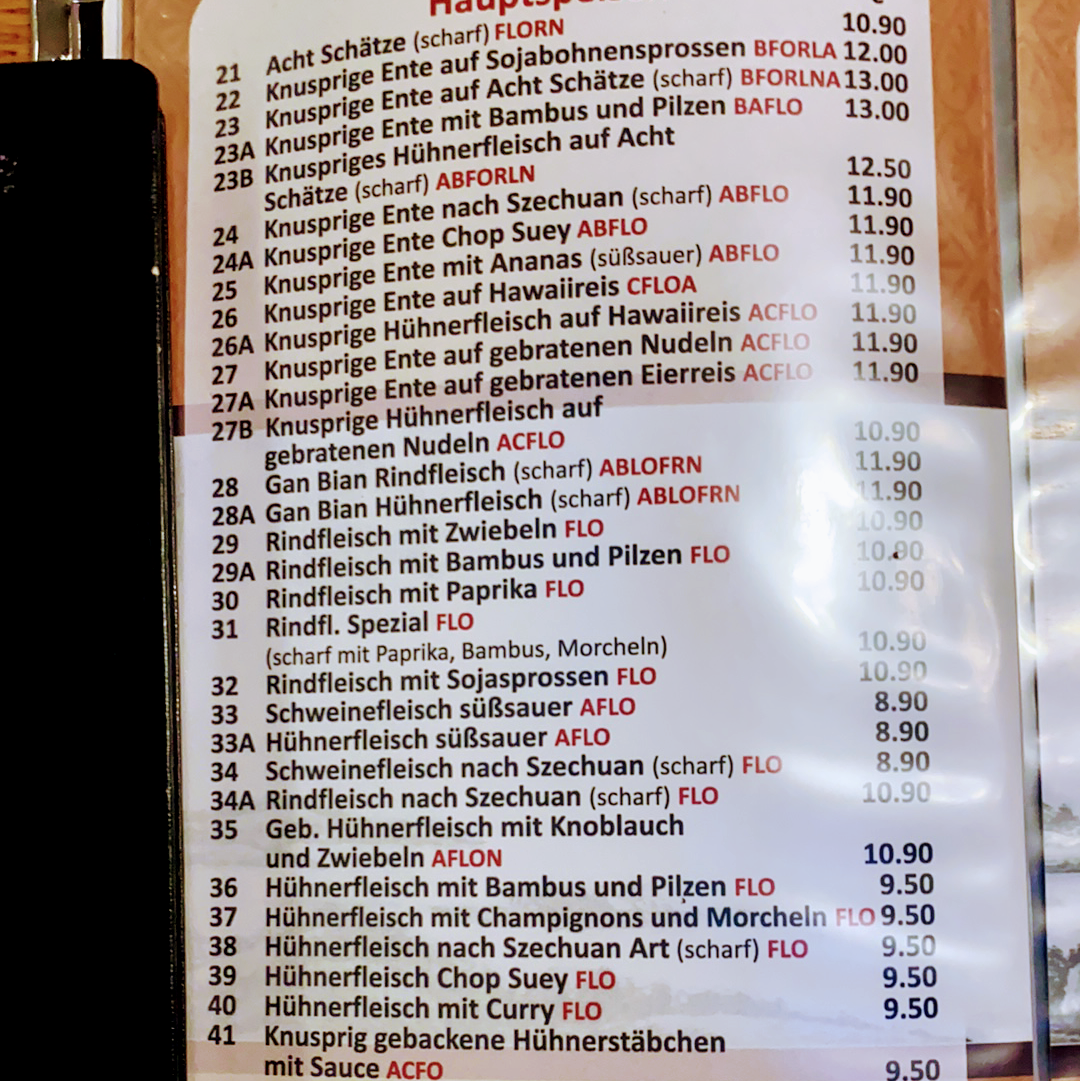 21 Acht Schätze (scharf) FLORN 10.90
22 Knusprige Ente auf Sojabohnensprossen BFORLA 12.00
23 Knusprige Ente auf Acht Schätze (scharf) BFORLNA 13.00
23A Knusprige Ente mit Bambus und Pilzen BAFLO 13.00
23B Knuspriges Hühnerfleisch auf Acht
Schätze (scharf) ABFORLN 12.50
24 Knusprige Ente nach Szechuan (scharf) ABFLO 11.90
24A Knusprige Ente Chop Suey ABFLO 11.90
25 Knusprige Ente mit Ananas (süßsauer) ABFLO 11.90
26 Knusprige Ente auf Hawaiireis CFLOA 11.90
26A Knusprige Hühnerfleisch auf Hawaiireis ACFLO 11.90
27 Knusprige Ente auf gebratenen Nudeln ACFLO 11.90
27A Knusprige Ente auf gebratenen Eierreis ACFLO 11.90
27B Knusprige Hühnerfleisch auf
gebratenen Nudeln ACFLO 10.90
28 Gan Bian Rindfleisch (scharf) ABLOFRN 11.90
28A Gan Bian Hühnerfleisch (scharf) ABLOFRN 11.90
29 Rindfleisch mit Zwiebeln FLO 10.90
29A Rindfleisch mit Bambus und Pilzen FLO 10.90
30 Rindfleisch mit Paprika FLO 10.90
31 Rindfl. Spezial FLO
(scharf mit Paprika, Bambus, Morcheln) 10.90
32 Rindfleisch mit Sojasprossen FLO 10.90
33 Schweinefleisch süßsauer AFLO 8.90
33A Hühnerfleisch süßsauer AFLO 8.90
34 Schweinefleisch nach Szechuan (scharf) FLO 8.90
34A Rindfleisch nach Szechuan (scharf) FLO 10.90
35 Geb. Hühnerfleisch mit Knoblauch
und Zwiebeln AFLON 10.90
36 Hühnerfleisch mit Bambus und Pilzen FLO 9.50
37 Hühnerfleisch mit Champignons und Morcheln FLO 9.50
38 Hühnerfleisch nach Szechuan Art (scharf) FLO 9.50
39 Hühnerfleisch Chop Suey FLO 9.50
40 Hühnerfleisch mit Curry FLO 9.50
41 Knusprig gebackene Hühnerstäbchen
mit Sauce ACFO 9.50